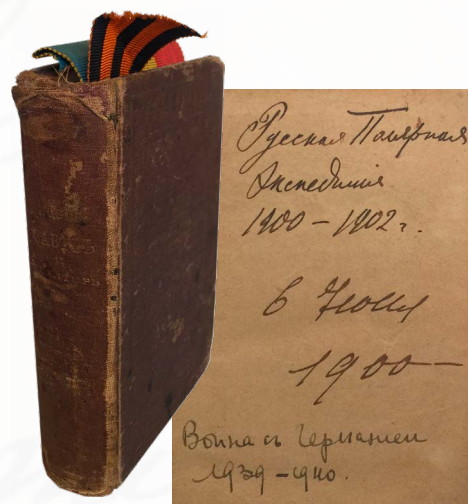 Русская Полярная
Экспедиция
1900 – 1902 г.
6 Июня
1900 –
Война съ Германіей
1939 – 1940.